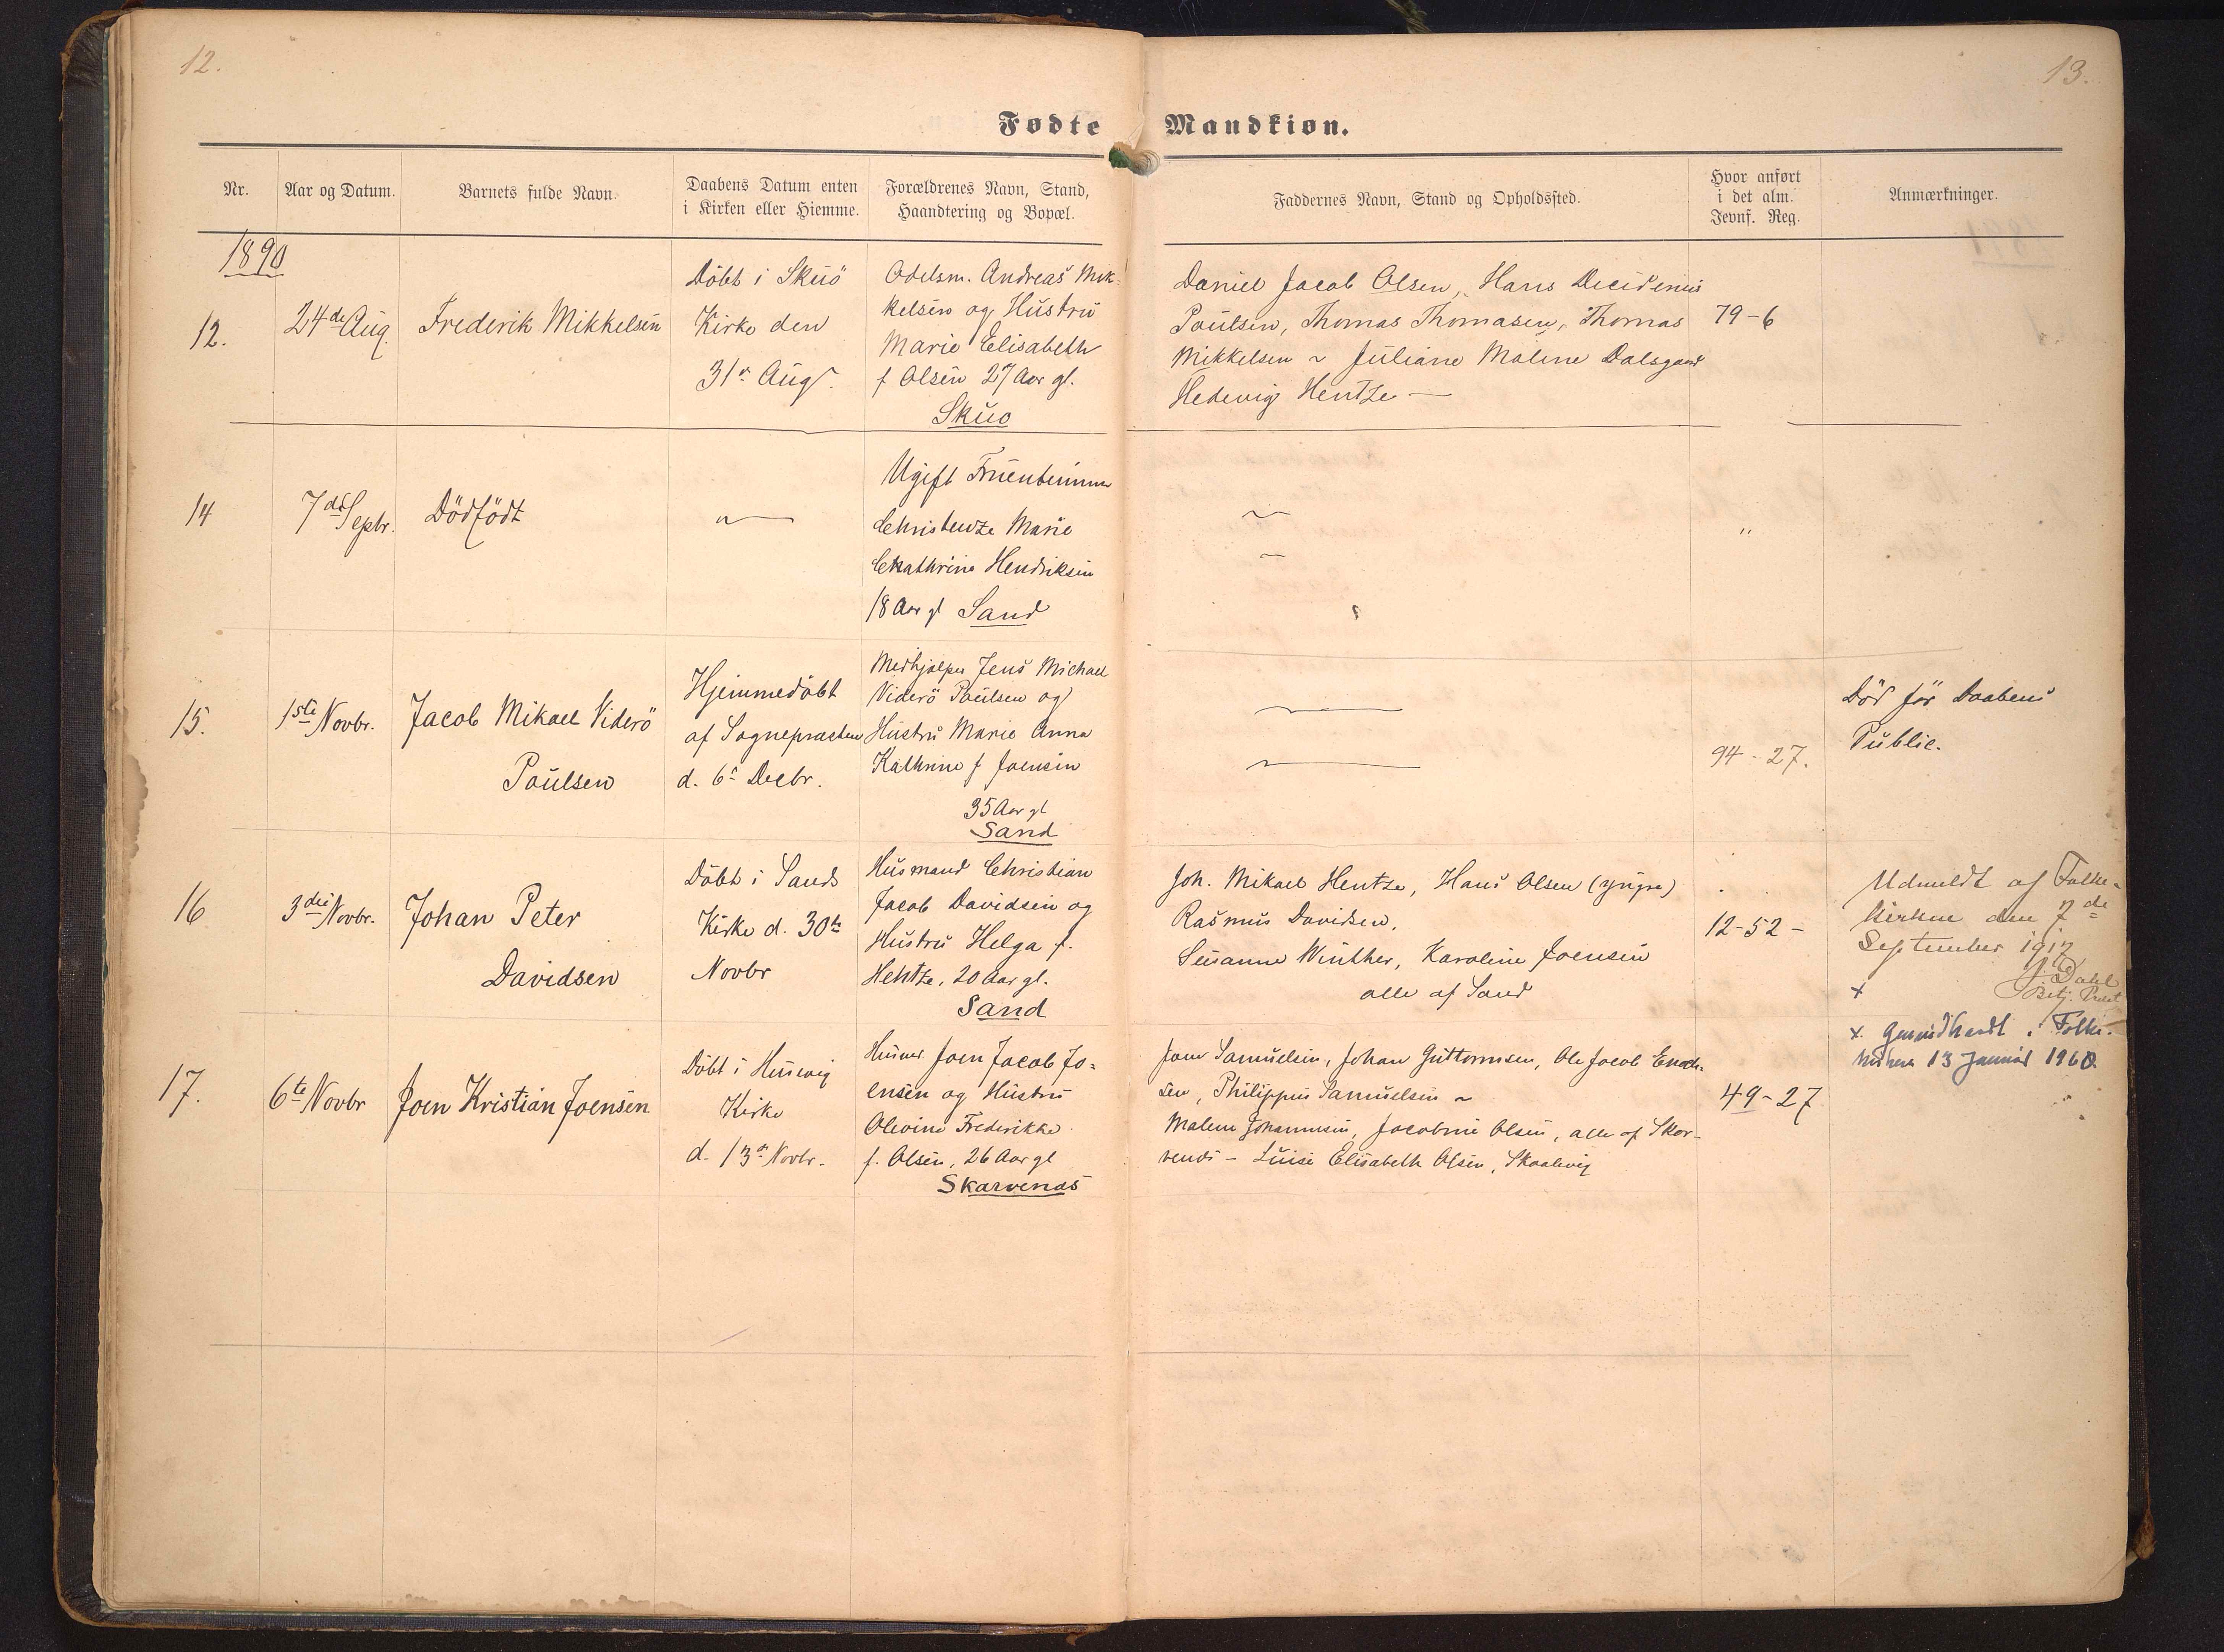 12.
13.
Fødte Mandkiøn.
Nr.
Aar og Datum.
Barnets fulde Navn.
Daabens Datum enten
i Kirken eller Hiemme.
Forældrenes Navn, Stand,
Haandtering og Bopæl.
Faddernes Navn, Stand og Opholdssted.
Hvor anført
i det alm.
Jevnf. Reg.
Anmærkninger.
1890
12.
24de Aug.
Frederik Mikkelsen
Döbt i Skuö
Kirke den
31te Aug.
Odelsm. Andreas Mik-
kelsen og Hustru
Marie Elisabeth
f Olsen 27 Aar gl.
Skuö
Daniel Jacob Olsen, Hans
Poulsen, Thomas Thomasen, Thomas
Mikkelsen ~ Juliane Malene Dalsgaard
Hedevig Hentze —
79-6
14
7de Septr.
Dödfödt
"
Ugift Fruentimmer
Christentze Marie
Cathrine Hendriksen
18 Aar gl Sand
"
15.
1ste Novbr.
Jacob Mikael Viderö
Poulsen
Hjemmedöbt
af Sognepræsten
d. 6te Decbr.
Medhjælper Jens Michael
Viderö Poulsen og
Hustru Marie Anna
Kathrine f Joensen
35 Aar gl
Sand
94-27.
Död för Daabens
Public.
16
3die Novbr.
Johan Peter
Davidsen
Döbt i Sands
Kirke d. 30te
Novbr
Husmand Christian
Jacob Davidsen og
Hustru Helga f.
Hentze, 20 Aar gl.
Sand
Joh. Mikael Hentze, Hans Olsen (yngre)
Rasmus Davidsen.
Susanne Winther, Karoline Joensen
alle af Sand
12-52-
Udmeldt af Folke-
kirken den 7de
September 1917
J. Dahl
x
x Folke-
kirken 13 Januar 1960.
17.
6te Novbr
Joen Kristian Joensen
Döbt i Husevig
Kirke
d. 13de Novbr.
Husmd. Joen Jacob Jo-
ensen og Hustru
Olevine Frederikke
f. Olsen, 26 Aar gl
Skarvenæs
Joen Samuelsen, Johan Guttormsen, Ole Jacob
sen, Philippus Samuelsen ~
Malene Johannesen, Jacobine Olsen, alle af Skar-
venæs - Luise Elisabeth Olsen, Skaalevig
49-27